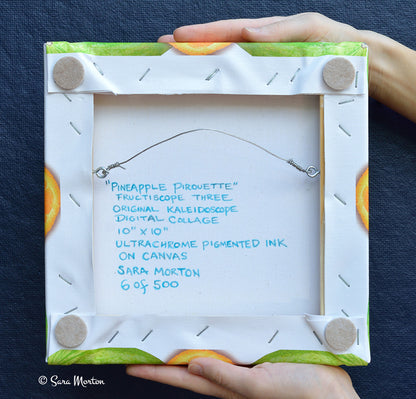 "PINEAPPLE PIROUETTE"
FRUCTISCOPE THREE
ORIGINAL KALEIDOSCOPE
DIGITAL COLLAGE
10" x 10"
ULTRACHROME PIGMENTED INK
ON CANVAS
SARA MORTON
6 of 500
© Sara Morton